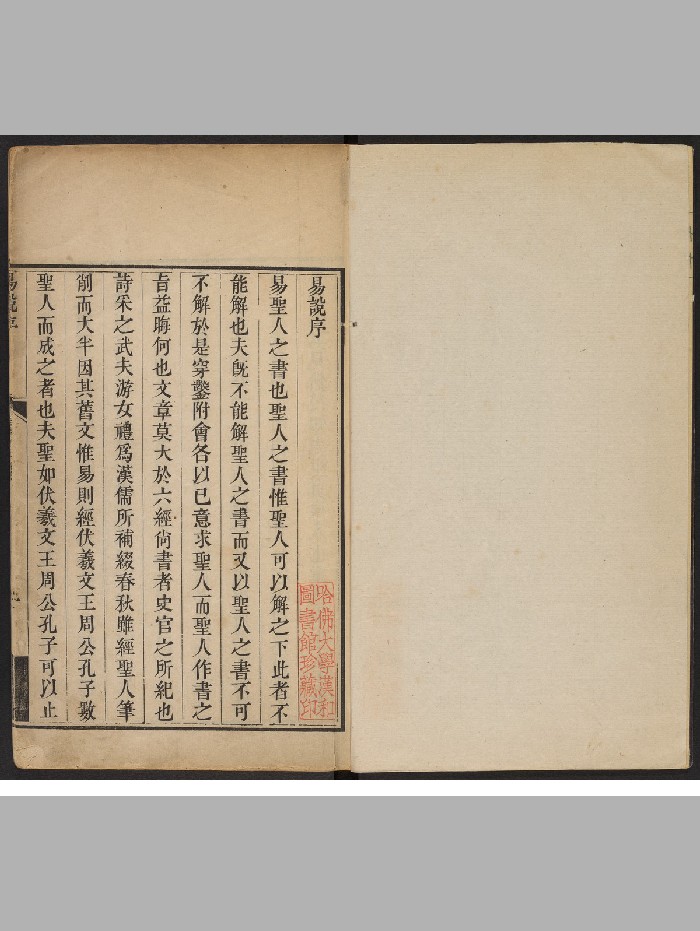 易說序
易聖人之書也聖人之書惟聖人可以解之下此者不
能解也夫旣不能解聖人之書而又以聖人之書不可
不解於是穿鑿附會各以已意求聖人而聖人作書之
旨益晦何也文章莫大於六經尙書者史官之所紀也
詩采之武夫游女禮爲漢儒所補綴春秋雖經聖人筆
削而大半因其舊文惟易則經伏羲文王周公孔子數
聖人而成之者也夫聖如伏羲文王周公孔子可以止
易說序
哈佛大學漢和
圖書館珍藏印